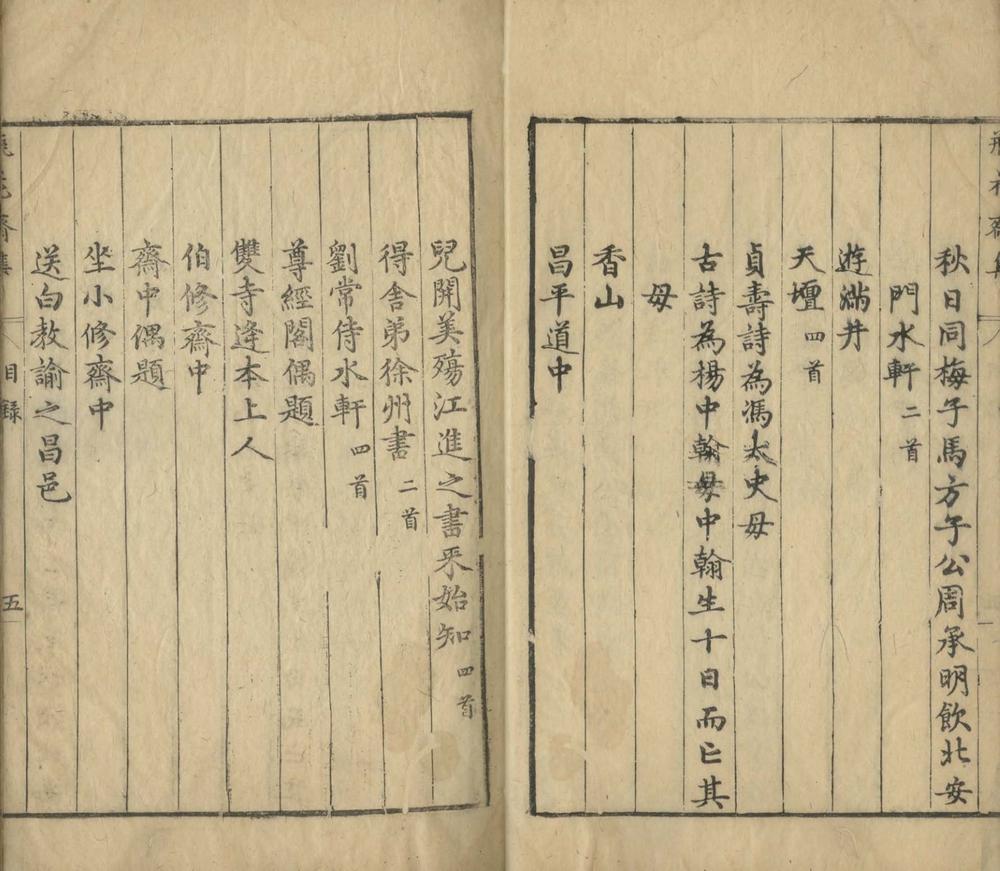 秋日同梅子馬方子公周承明飲北安
門水軒 二首
遊滿井
天壇 四首
貞壽詩為馮太史母
古詩為楊中翰母中翰生十日而亡其
母
香山
昌平道中
兒開美殤江進之書來始知 四首
得舍弟徐州書 二首
劉常侍水軒 四首
尊經閣偶題
雙寺逢本上人
伯修齋中
齋中偶題
坐小修齋中
送白教諭之昌邑
目録 五